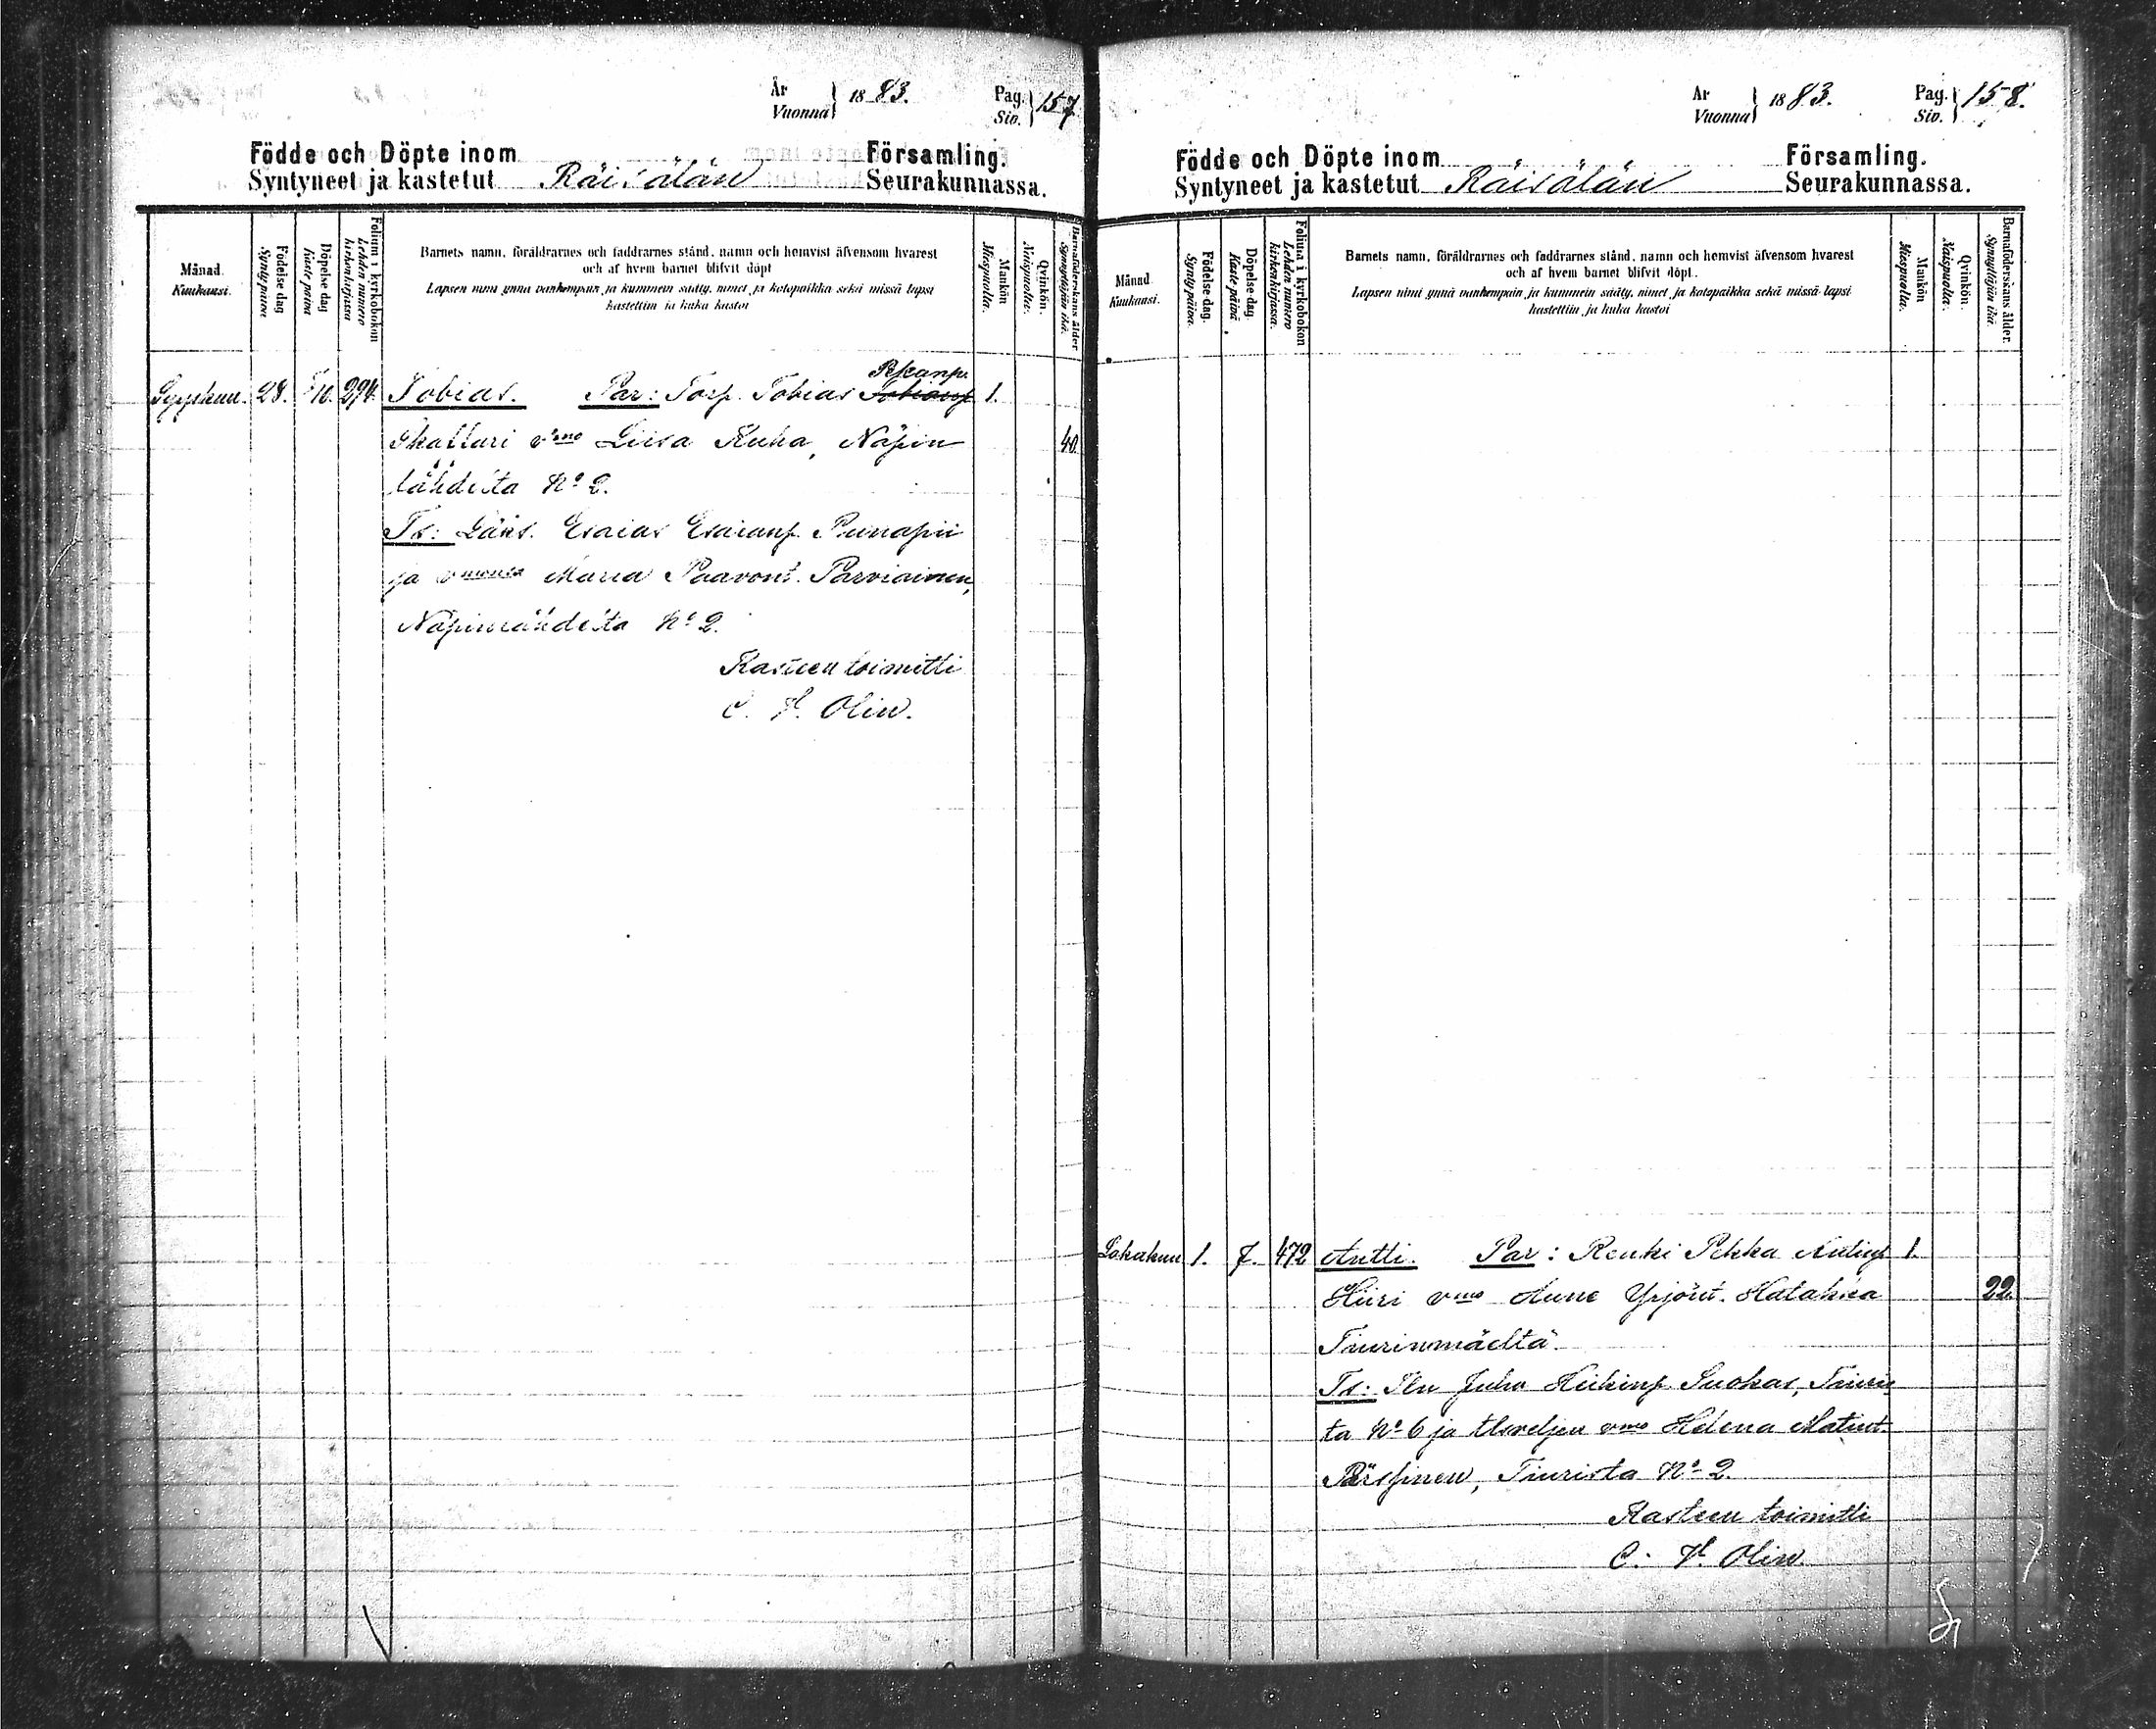 År
Vuonna } 1883. Pag.
Siv. } 157
Födde och Döpte inom Församling.
Syntyneet ja kastetut Räisälän Seurakunnassa.
Månad.
Kuukausi.
Födelse dag
Synty päivä
Döpelse dag
Kaste päivä
Folium i kyrkobokon
Lehden numero
kirkonkirjassa
Barnets namn, föräldrarnes och faddrarnes stånd, namn och hemvist äfvensom hvarest
och af hvem barnet blifvit döpt
Lapsen nimi ynnä vanhempain ja kummein sääty, nimet ja kotopaikka sekä missä lapsi
kastettiin ja kuka kastoi
Mankön
Miespuolta.
Qvinkön.
Naispuolta.
Barnaföderskans ålder
Synnyttäjän ikä.
Syyskuu. 28. 294. Tobias. Par: Torp. Tobias 1.
Skattari vmo Liisa Kuha, Näpin 40.
lähdeltä No 2.
Ts: Esaias Esaianp. Punapii
ja Maria Paavont. Parviainen,
No 2.
Kasteen toimitti
C. F. Olin.
År
Vuonna } 1883. Pag.
Siv. } 158.
Födde och Döpte inom Församling.
Syntyneet ja kastetut Räisälän Seurakunnassa.
Månad.
Kuukausi.
Födelse dag.
Synty päivä.
Döpelse dag.
Kaste päivä.
Folium i kyrkobokon
Lehden numero
kirkonkirjassa.
Barnets namn, föräldrarnes och faddrarnes stånd, namn och hemvist äfvensom hvarest
och af hvem barnet blifvit döpt.
Lapsen nimi ynnä vanhempain ja kummein sääty, nimet ja kotopaikka sekä missä lapsi
kastettiin ja kuka kastoi
Mankön
Miespuolta.
Qvinkön.
Naispuolta.
Barnaföderskans ålder.
Synnyttäjän ikä.
Lokakuu 1. 7. 472 Antti. Par: Renki Pekka Antinp 1.
Hiiri vmo Anne Yrjönt. Hatakka 22.
Tiurinmäeltä.
Ts: Juho Heikinp Suokas, Tiuris
ta No 6 ja vmo Helena Matint.
Pärssinen, Tiurista No 2.
Kasteen toimitti
C. F. Olin.